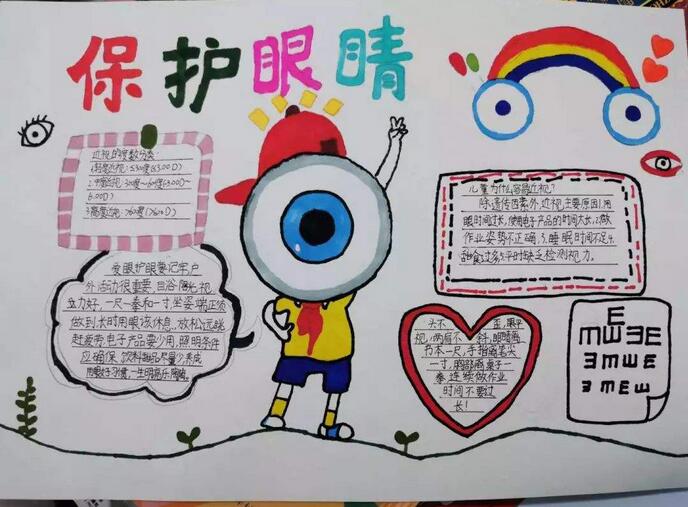 保护眼睛
近视的度数分类
1.轻度近视:≤300度(≤3.00D)
2.中度近视:300度~600度(3.00D~
6.00D)
3.高度近视:>600度(>6.00D)
爱眼护眼要记牢户
外活动很重要,目浴阳光视
力好,一尺一拳和一寸,坐姿端正须
做到长时用眼该休息,放松远眺
赶疲劳电子产品要少用,照明条件
应确保,饮料甜品尽量少养成
用眼好习惯,一生明亮乐陶陶
儿童为什么容易近视?
除遗传因素外,近视主要原因1.用
眼时间过长,使用电子产品的时间太长,2.做
作业姿势不正确,3.睡眠时间不足4.
甜食过多5.平时缺乏检测视力。
头不 歪,眼平
视,两肩不斜,眼睛离
书本一尺,手指离笔尖
一寸,胸部离桌子一
拳连续做作业
时间不要过
长!
E
E M W 3 E
3 M W E
3 M E W